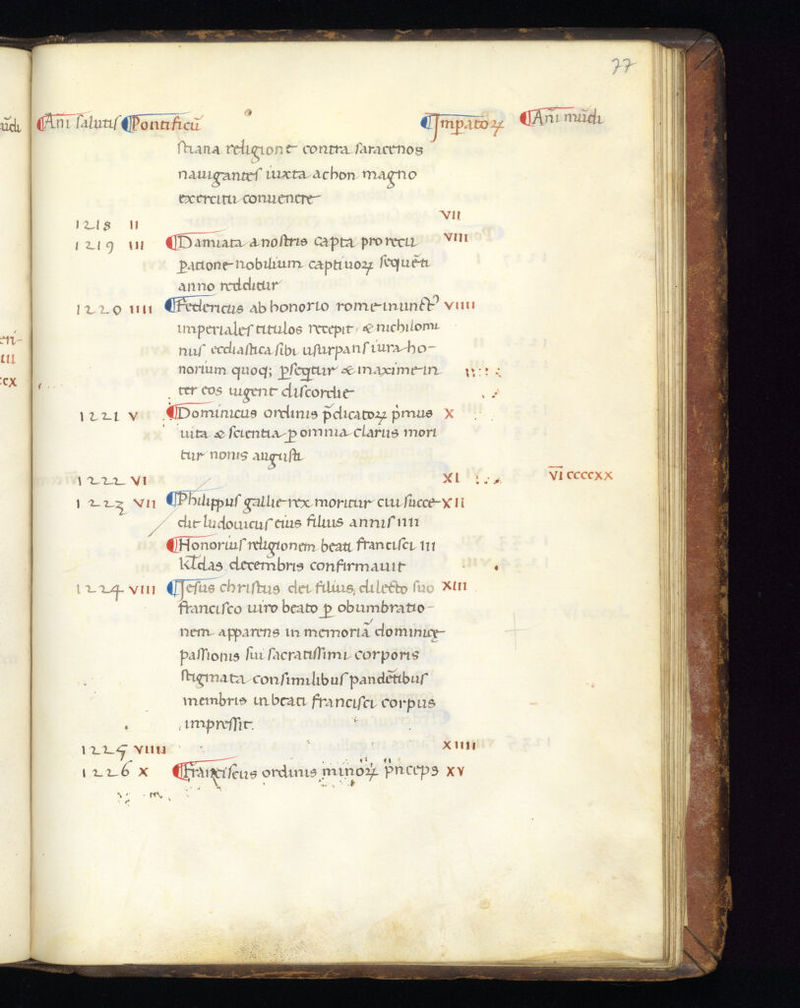 77
Añi salutis Pontificũ Impatoꝝ Añi mũdi
stiana religione contra saracenos
nauigantes iuxta achon magno
exercitu conuenere
1218 II VII
1219 III Damiata a nostris capta pro recu VIII
ꝑatione nobilium captiuoꝝ sequẽti
anno redditur
1220 IIII Federicus ab honorio rome inunct᷒ VIIII
imperiales titulos recepit & nichilomi
nus ecclīastica sibi usurpans iura ho-
norium quoq; ꝑseqtur & maxime in
ter eos uigent discordie
1221 V Dominicus ordinis p̃dicatoꝝ p̃mus X
uita & scientia ꝑ omnia clarus mori
tur nonis augusti
1222 VI XI VI CCCCXX
1223 VII Philippus gallie rex moritur cui succe- XII
dit ludouicus eius filius annis IIII
Honorius religionem beati francisci III
kl̃das decembris confirmauit
1224 VIII Jesus christus dei filius, dilecto suo XIII
francisco uiro beato ꝑ obumbratio-
nem apparens in memoriã dominice
passionis sui sacratissimi corporis
stigmata consimilibus pandẽtibus
membris in beati francisci corpus
impressit.
1225 VIIII XIIII
1226 X Franciscus ordinis minoꝝ p̃nceps XV